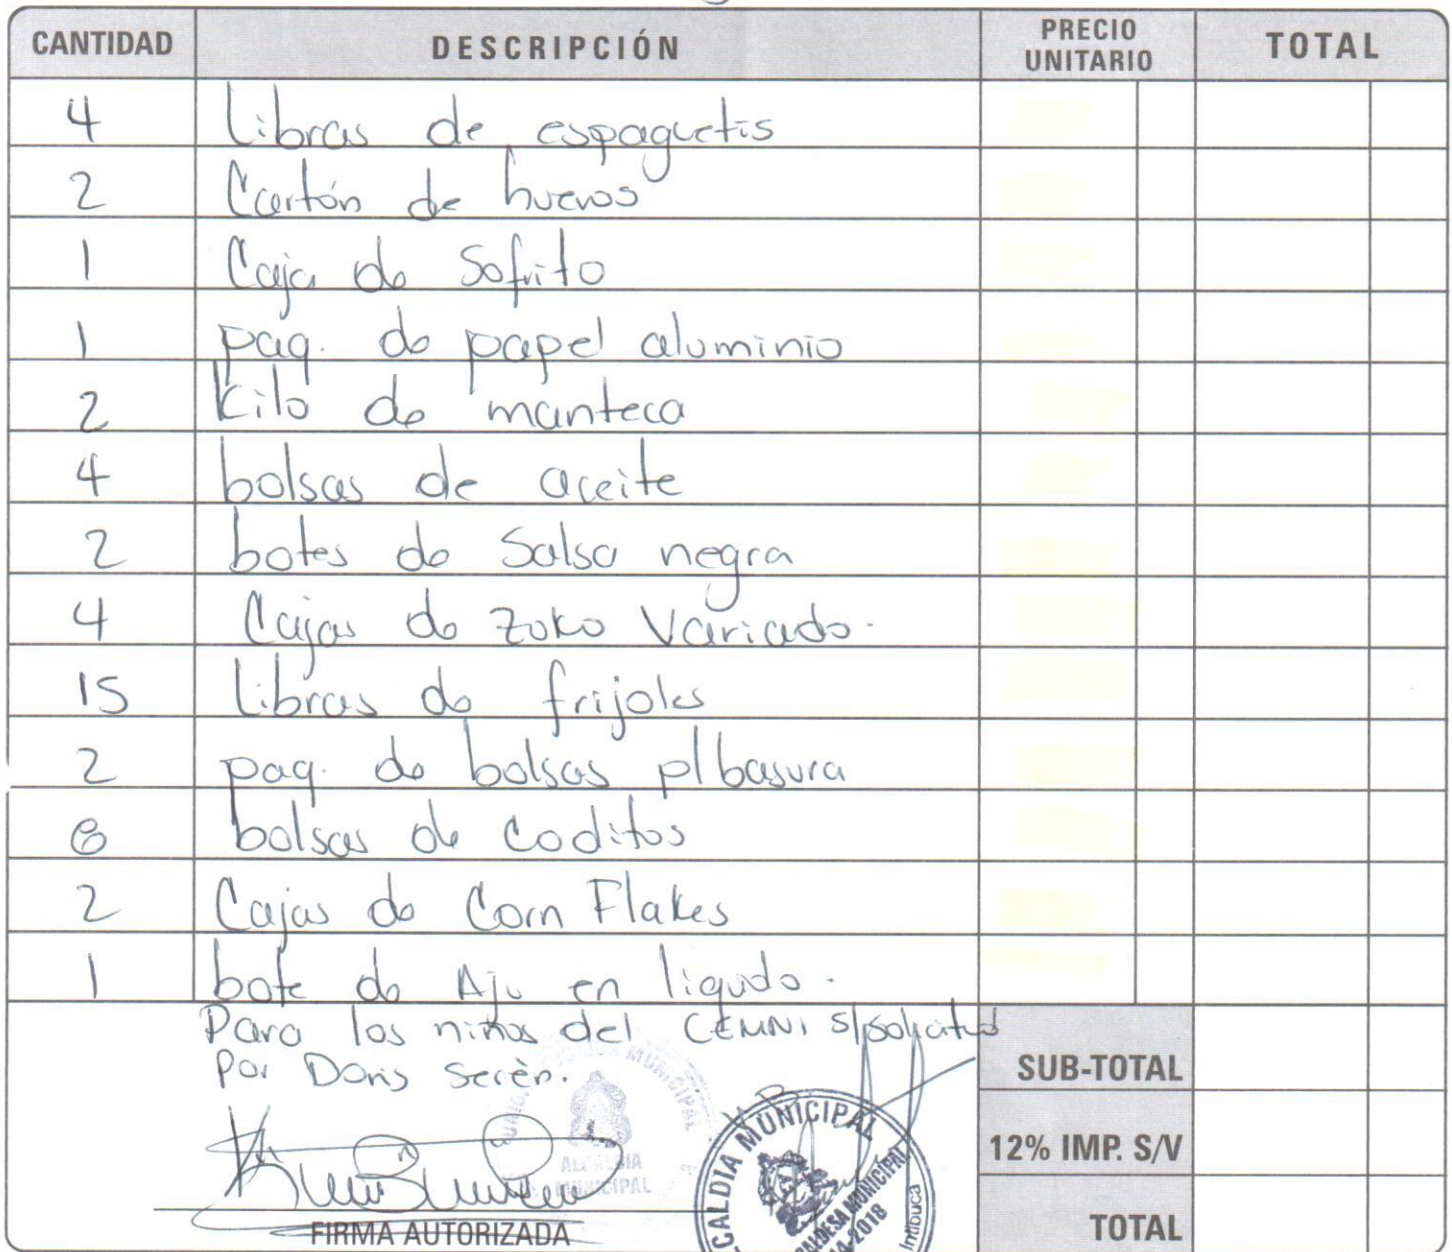 CANTIDAD DESCRIPCIÓN PRECIO UNITARIO TOTAL
4 Libras de espaguetis
2 Cartón de huevos
1 Caja de Sofrito
1 paq. de papel aluminio
2 Kilo de manteca
4 bolsas de aceite
2 botes de Salsa negra
4 Cajas de Zuko Variado.
15 Libras de frijoles
2 paq. de bolsas p/basura
8 bolsas de Coditos
2 Cajas de Corn Flakes
1 bote de Ajo en liquido.
Para los niños del CEMNI s/solicitud
Por Doris
SUB-TOTAL
12% IMP. S/V
TOTAL
FIRMA AUTORIZADA
ALCALDIA MUNICIPAL
ALCALDIA MUNICIPAL
ALCALDESA MUNICIPAL
2018
Intibuca